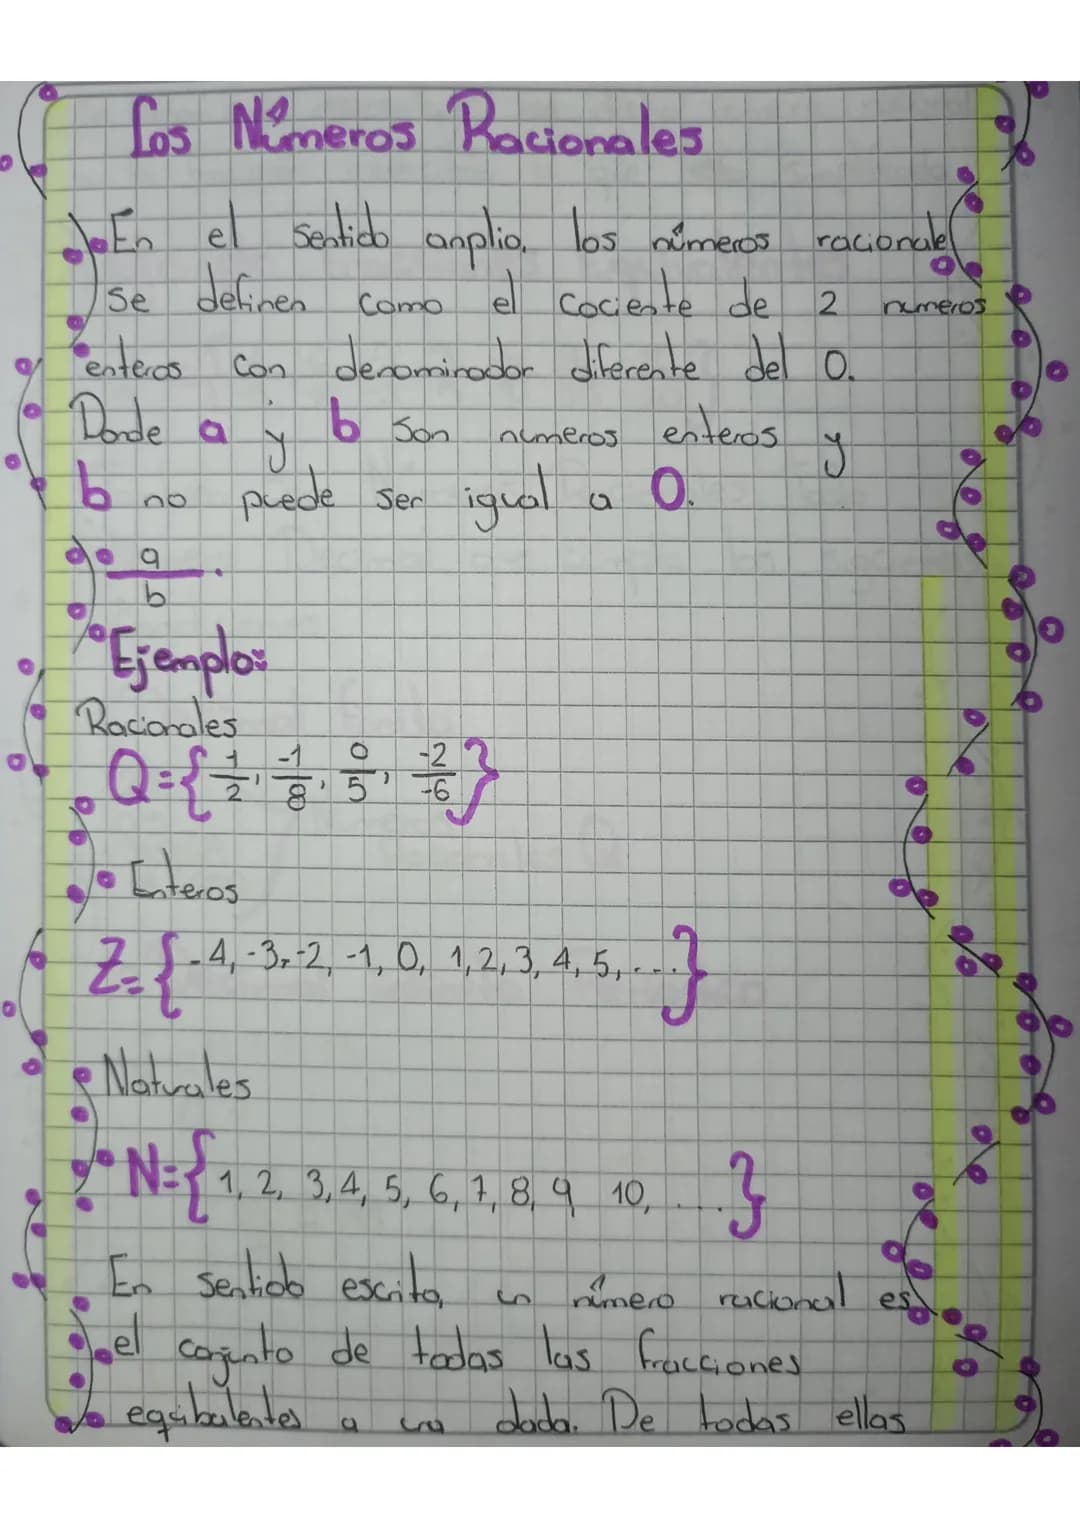 Los Números Racionales
En el sentido anplio, los números racionale
se definen como el cociente de 2 numeros
enteros con denominador diferente del 0.
Donde a y b son numeros enteros y
b no puede ser igual a 0.
a
b
Ejemplo:
Racionales
Q={1/2, -1/8, 0/5, -2/-6}
Enteros
Z={-4,-3,-2,-1,0, 1,2,3,4,5,...}
Naturales
N={1, 2, 3,4, 5, 6, 7, 8, 9 10, ...}
En sentido escrito, un número racional es
el conjunto de todas las fracciones
equibalentes a una dada. De todas ellas